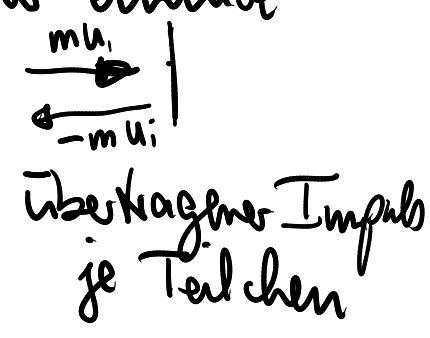 mu,
-mui
übertragener Impuls
je Teilchen